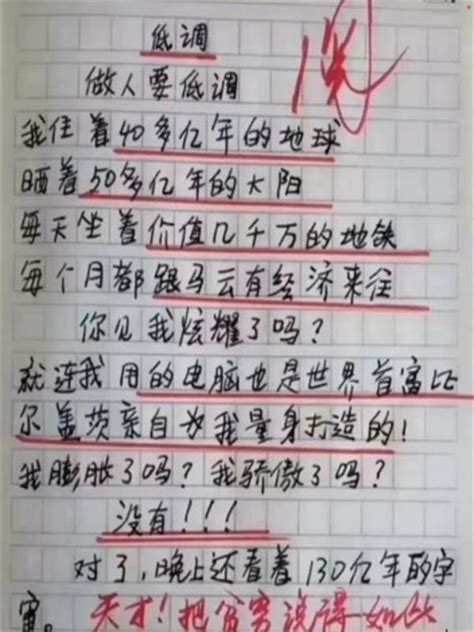 低调
做人要低调
我住着40多亿年的地球
晒着50多亿年的太阳
每天坐着价值几千万的地铁
每个月都跟马云有经济来往
你见我炫耀了吗？
就连我用的电脑也是世界首富比
尔盖茨亲自为我量身打造的！
我膨胀了吗？我骄傲了吗？
没有！！！
对了，晚上还看着130亿年的宇
宙。
天才！把贫穷说得如此